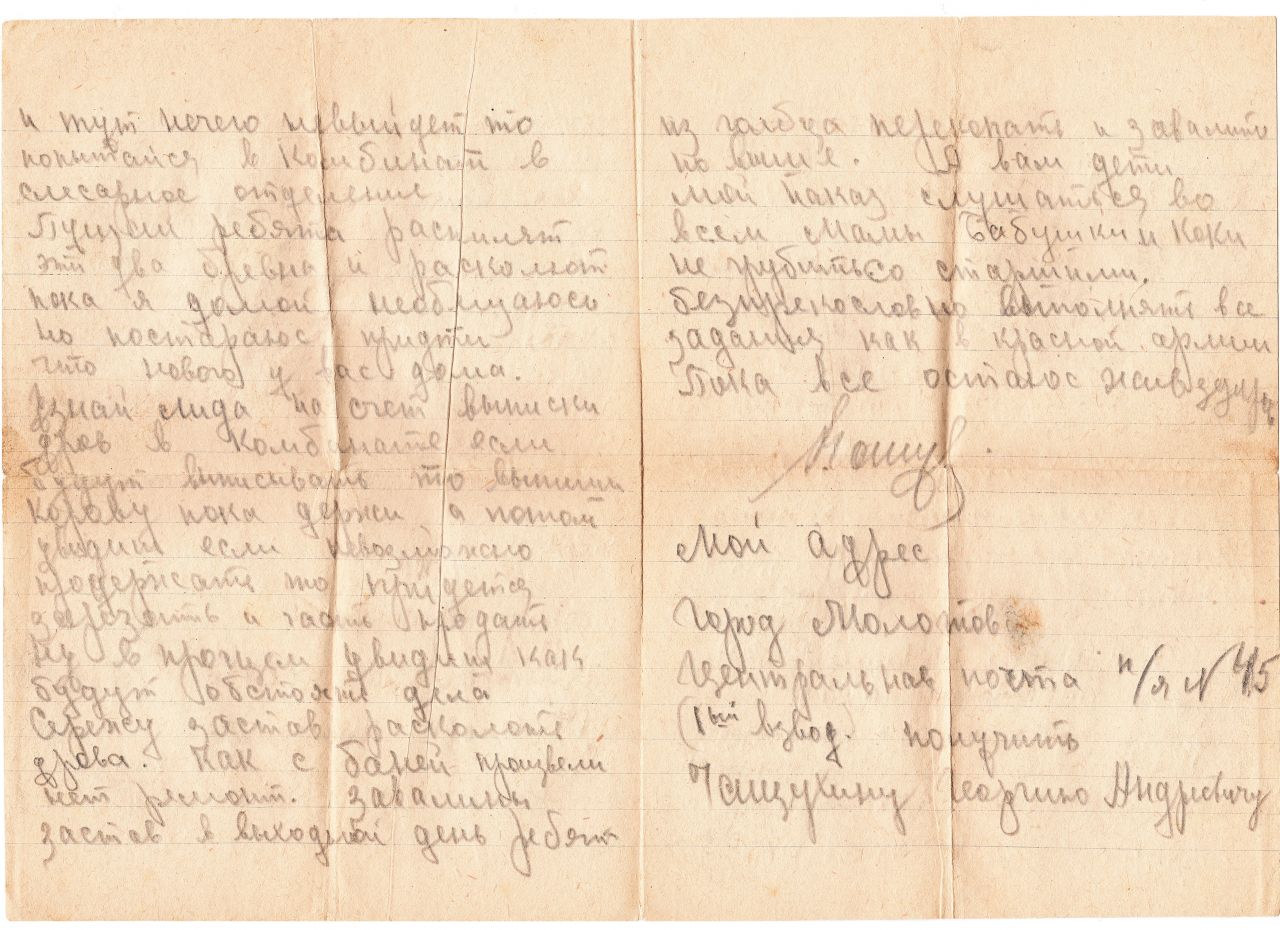 и тут нечего невыйдет то
попытайся в Комбинат в
слесарное отделение
Пускай ребята распилят
эти два бревна и расколют
пока я домой необещаюсь
но постараюс придти
что нового у вас дома.
Узнай Лида на счет выписки
дров в комбинате если
будут выписывать то выпиши
Корову пока держи а потом
увидим если невозможно
продержать то придется
зарезать и часть продать
Ну в прочем увидим как
будут обстоять дела
Сережу застав расколоть
дрова. Как с баней произвели
нет ремонт. Завалины
застав в выходной день ребят
из голбца перекопать и завалить
по выше. А вам дети
мой наказ слушаться во
всем Мамы Бабушки и Коки
не грубить со старшими.
безпрекословно выполнять все
задания как в красной армии
Пока все остаюс жив здоров

Мой адрес
Город Молотов
Центральная почта п/я N 45
(1ый взвод) получить
Чащухину Георгию Андреевичу